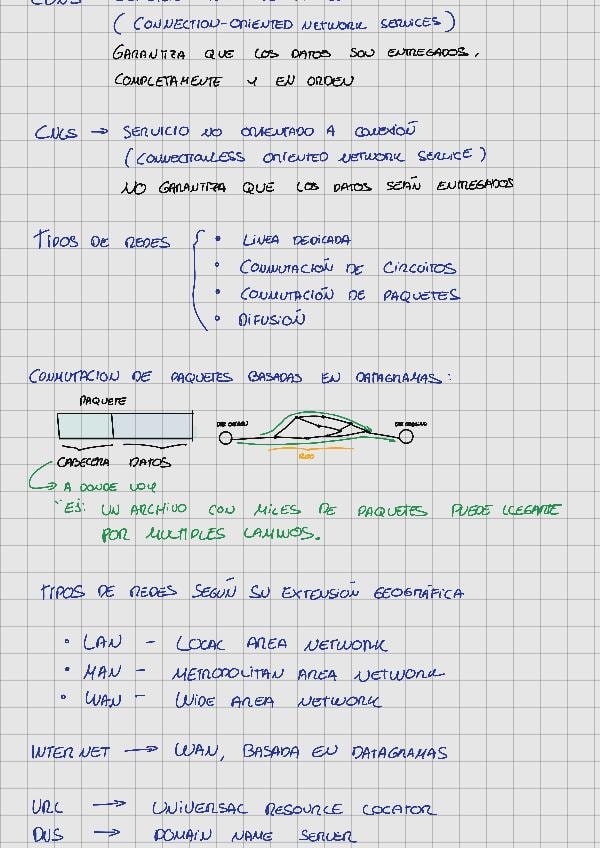 (CONNECTION-ORIENTED NETWORK SERVICES)
GARANTIZA QUE LOS DATOS SON ENTREGADOS,
COMPLETAMENTE Y EN ORDEN
CNLS → SERVICIO NO ORIENTADO A CONEXIÓN
(CONNECTIONLESS ORIENTED NETWORK SERVICE)
NO GARANTIZA QUE LOS DATOS SEAN ENTREGADOS
TIPOS DE REDES { • LÍNEA DEDICADA
• CONMUTACIÓN DE CIRCUITOS
• CONMUTACIÓN DE PAQUETES
• DIFUSIÓN
CONMUTACION DE PAQUETES BASADAS EN DATAGRAMAS:
PAQUETE
CABECERA DATOS
RED
A DONDE VOY
EJ: UN ARCHIVO CON MILES DE PAQUETES PUEDE LLEGARTE
POR MULTIPLES CAMINOS.
TIPOS DE REDES SEGÚN SU EXTENSIÓN GEOGRÁFICA
• LAN - LOCAL AREA NETWORK
• MAN - METROPOLITAN AREA NETWORK
• WAN - WIDE AREA NETWORK
INTERNET → WAN, BASADA EN DATAGRAMAS
URL → UNIVERSAL RESOURCE LOCATOR
DNS → DOMAIN NAME SERVER